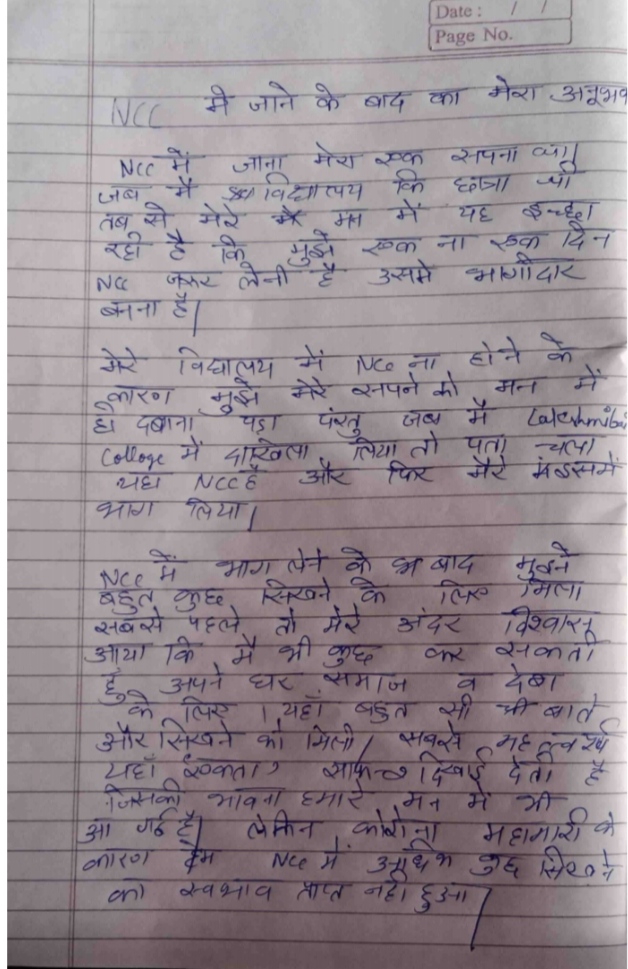 Date : / /
Page No.
NCC में जाने के बाद का मेरा अनुभव
NCC में जाना मेरा एक सपना था।
जब मैं विद्यालय कि छात्रा थी
तब से मेरे मन में यह इच्छा
रही है कि मुझे एक ना एक दिन
NCC जरूर लेनी है उसमे भागीदार
बनना है।
मेरे विद्यालय में NCC ना होने के
कारण मुझे मेरे सपने को मन में
ही दबाना पड़ा परंतु जब मैं Lakshmibai
College में दाखिला लिया तो पता चला
यहा NCC है और फिर मैरे इसमें
भाग लिया।
NCC में भाग लेने के बाद मुझे
बहुत कुछ सिखने के लिए मिला
सबसे पहले तो मेरे अंदर विश्वास
आया कि मै भी कुछ कर सकती
हूँ अपने घर समाज व देश
के लिए । यहाँ बहुत सी भी बाते
और सिखने को मिली। सबसे महत्वपूर्ण
यहाँ एकता, साफ-२ दिखाई देती है
जिसकी भावना हमारे मन में भी
आ गई है। लेकिन कोरोना महामारी के
कारण हम NCC में अधिक कुछ सिखने
का स्वभाव प्राप्त नही हुआ।